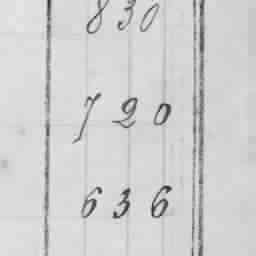 830
720
636